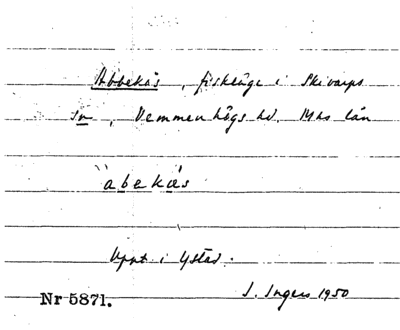 Abbekås, fiskläge i Skivarps
sn, Vemmenhögs hd. Mhs län
`àbekås
Uppt. i Ystad.
I. Ingers 1950
Nr 5871.